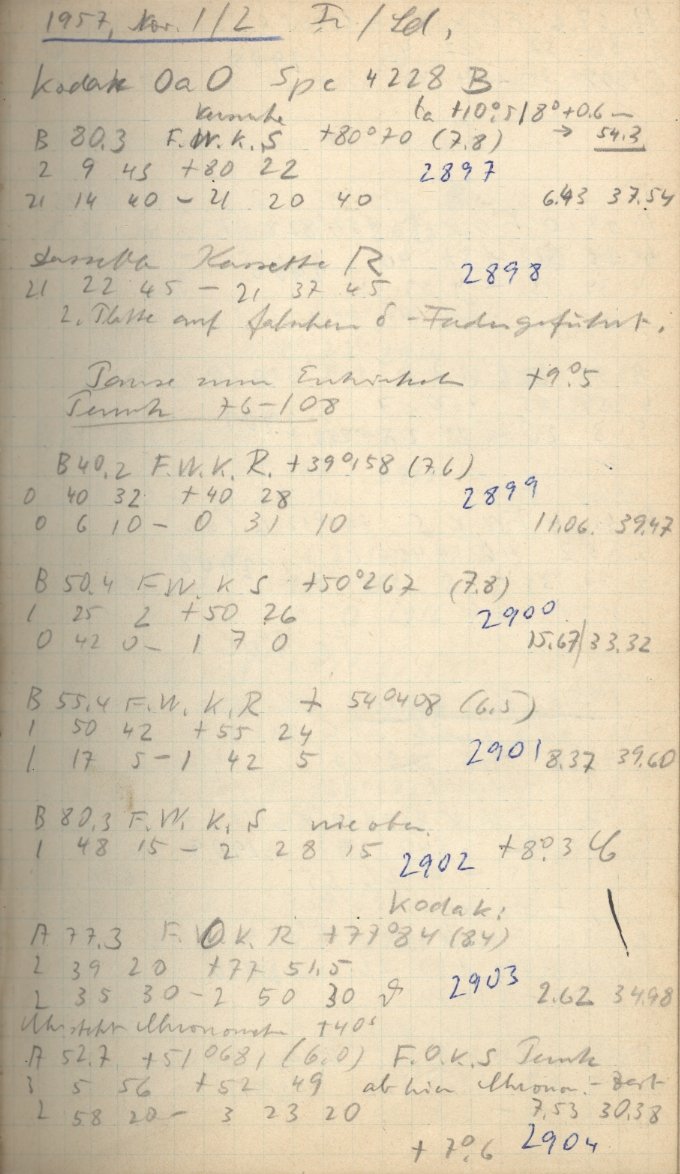 1957, Nov. 1/2 Fr/Sd,
Kodak OaO Spc 4228 B
ta +10°.5/8°+0.6
B 80.3 F.W.K.S +80°70 (7.8) → 54.3
2 9 43 +80 22 2897
21 14 40 - 21 20 40 6.43 37.54
dasselbe Kassette R
2898
21 22 45 - 21 37 45
2. Platte auf falschem δ-Faden geführt.
Pause zum Entwickeln +9°.5
+6-108
B 40.2 F.W.K.R. +39°158 (7.6)
0 40 32 +40 28 2899
0 6 10 - 0 31 10 11.06. 39.47
B 50.4 F.W.K S +50°267 (7.8)
1 25 2 +50 26 2900
0 42 0 - 1 7 0 15.67/33.32
B 55.4 F.W.K.R + 54°408 (6.5)
1 50 42 +55 24
1 17 5 - 1 42 5 2901 8.37 39.60
B 80.3 F.W.K.S wie oben
1 48 15 - 2 28 15 2902 +8°.3
Kodak:
A 77.3 F.O.K.R +77°84 (84)
2 39 20 +77 51.5
2 35 30 - 2 50 30 2903 2.62 34.98
+40s
A 52.7 +51°681 (6.0) F.O.K.S
3 5 56 +52 49 ab hier Chronom.-Zeit
2 58 20 - 3 23 20 7.53 30.38
+7°.6 2904